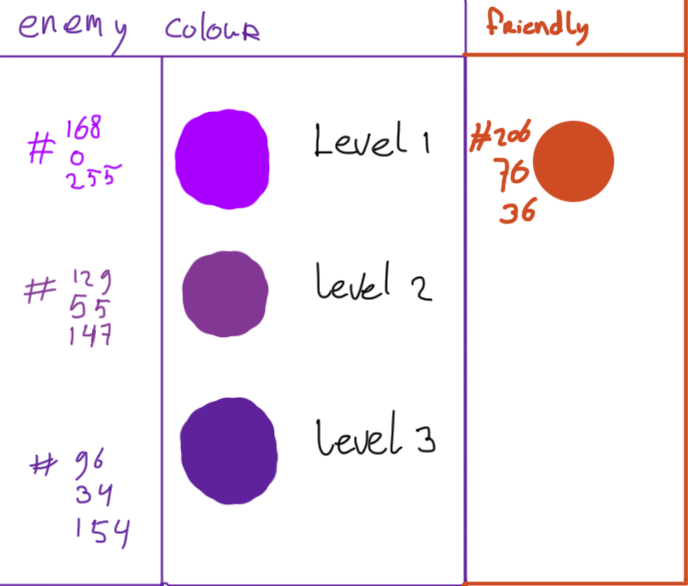 enemy
colour
friendly
# 168
0
255
Level 1
#206
76
36
# 129
55
147
Level 2
# 96
34
154
Level 3